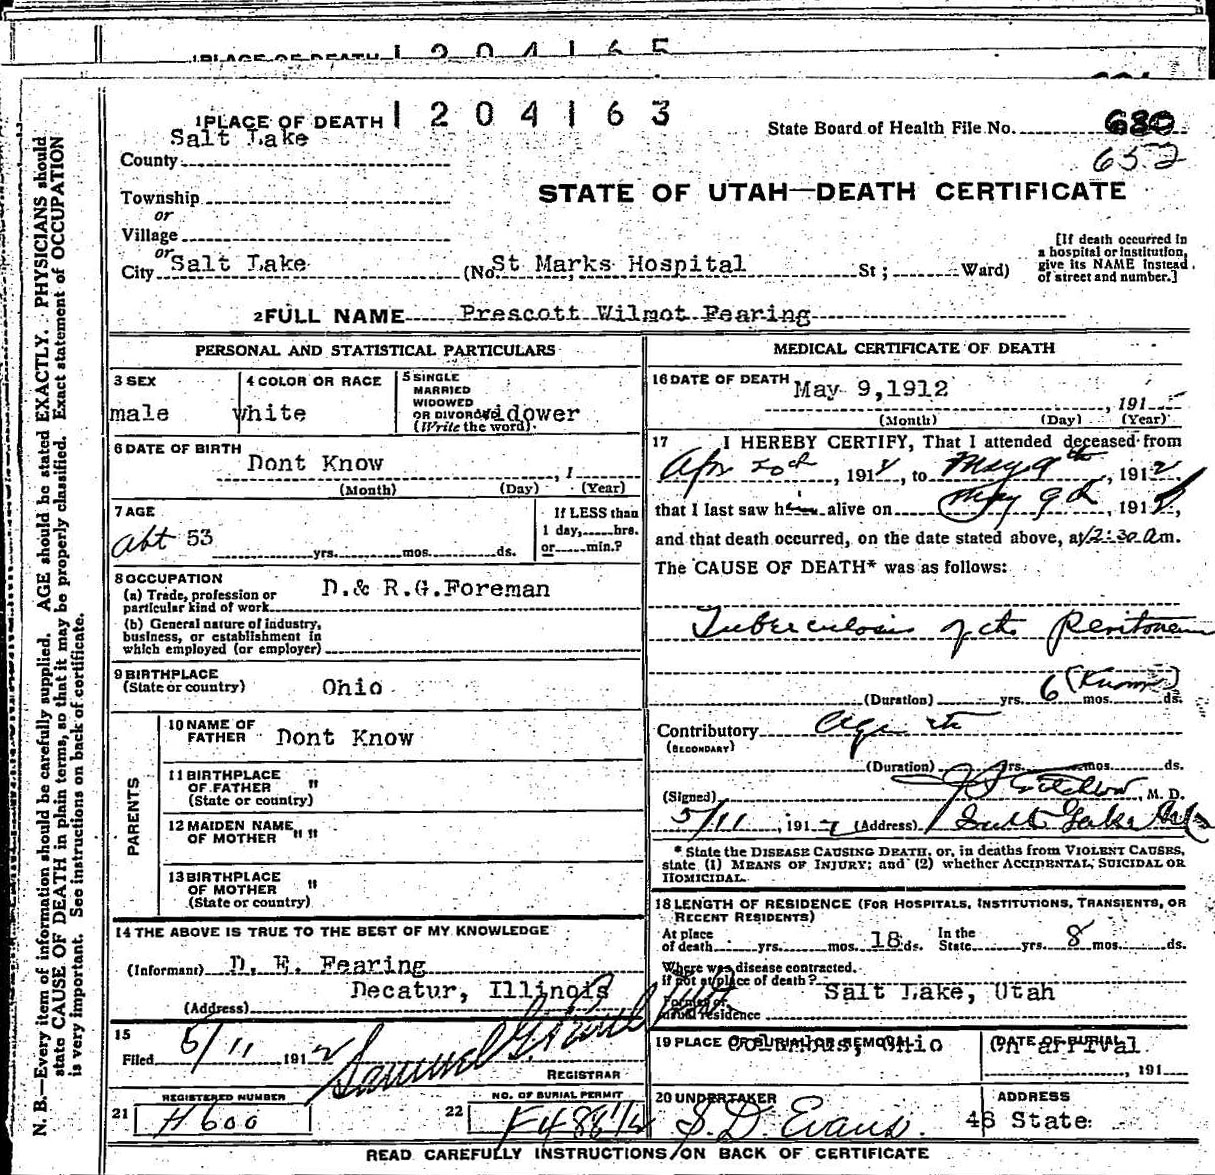 1204165
1 PLACE OF DEATH 1204163
State Board of Health File No. 680
652
Salt Lake
County
STATE OF UTAH—DEATH CERTIFICATE
Township
or
Village
or
City Salt Lake (No. St Marks Hospital St; Ward)
[If death occurred in
a hospital or institution,
give its NAME instead
of street and number.]
2 FULL NAME Prescott Wilmot Fearing
PERSONAL AND STATISTICAL PARTICULARS
3 SEX
male
4 COLOR OR RACE
white
5 SINGLE
MARRIED
WIDOWED
OR DIVORCED widower
(Write the word)
6 DATE OF BIRTH
Dont Know , 1
(Month) (Day) (Year)
7 AGE
abt 53 yrs. mos. ds.
If LESS than
1 day, hrs.
or min.?
8 OCCUPATION
(a) Trade, profession or
particular kind of work D.& R.G.Foreman
(b) General nature of industry,
business, or establishment in
which employed (or employer)
9 BIRTHPLACE
(State or country) Ohio
PARENTS
10 NAME OF
FATHER Dont Know
11 BIRTHPLACE
OF FATHER "
(State or country)
12 MAIDEN NAME
OF MOTHER " "
13 BIRTHPLACE
OF MOTHER "
(State or country)
14 THE ABOVE IS TRUE TO THE BEST OF MY KNOWLEDGE
(Informant) D. E. Fearing
(Address) Decatur, Illinois
15
Filed 5/11 1912 Samuel G.
REGISTRAR
REGISTERED NUMBER
21 H 600
NO. OF BURIAL PERMIT
22
MEDICAL CERTIFICATE OF DEATH
16 DATE OF DEATH May 9,1912
, 191
(Month) (Day) (Year)
17 I HEREBY CERTIFY, That I attended deceased from
Apr 20th , 191 , to May 9th , 1912,
that I last saw him alive on May 9th , 191 ,
and that death occurred, on the date stated above, at 12:30 a m.
The CAUSE OF DEATH* was as follows:
Tuberculosis of the Peritoneum
(Duration) yrs. 6 (Known) mos. ds.
Contributory
(SECONDARY)
(Duration) yrs. mos. ds.
(Signed) , M. D.
5/11 , 1912 (Address) Salt Lake
* State the DISEASE CAUSING DEATH, or, in deaths from VIOLENT CAUSES,
state (1) MEANS OF INJURY; and (2) whether ACCIDENTAL, SUICIDAL OR
HOMICIDAL.
18 LENGTH OF RESIDENCE (FOR HOSPITALS, INSTITUTIONS, TRANSIENTS, OR
RECENT RESIDENTS)
At place
of death yrs. mos. 18 ds.
In the
State yrs. 8 mos. ds.
Where was disease contracted,
if not at place of death?
Former or
usual residence Salt Lake, Utah
19 PLACE OF BURIAL OR REMOVAL Columbus, Ohio
DATE OF BURIAL On arrival
, 191
20 UNDERTAKER
S. D. Evans.
ADDRESS
48 State
READ CAREFULLY INSTRUCTIONS ON BACK OF CERTIFICATE
N. B.—Every item of information should be carefully supplied. AGE should be stated EXACTLY. PHYSICIANS should
state CAUSE OF DEATH in plain terms, so that it may be properly classified. Exact statement of OCCUPATION
is very important. See instructions on back of certificate.